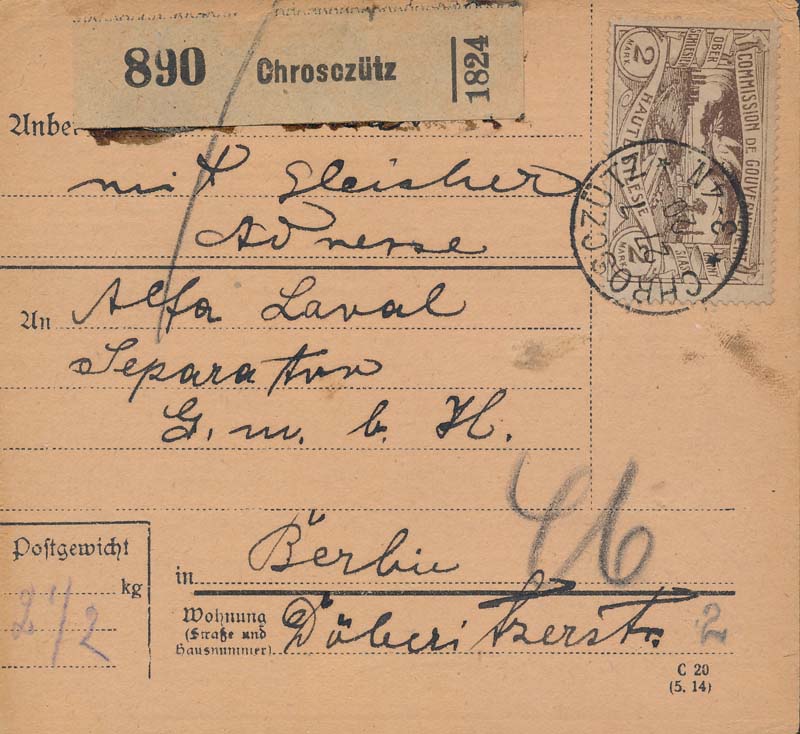 890 Chrosczütz 1824
2 MARK OBER SCHLESIEN COMMISSION DE GOUVERNEMENT HAUTE SILESIE 2 MARK
CHROSCZÜTZ
* 3-4N *
Anbei
mit gleicher
Adresse
An Alfa Laval
Separator
G. m. b. H.
46
Postgewicht
2 1/2 kg
in Berlin
Wohnung
(Straße und
Hausnummer)
Döberitzerstr. 2
C 20
(5. 14)